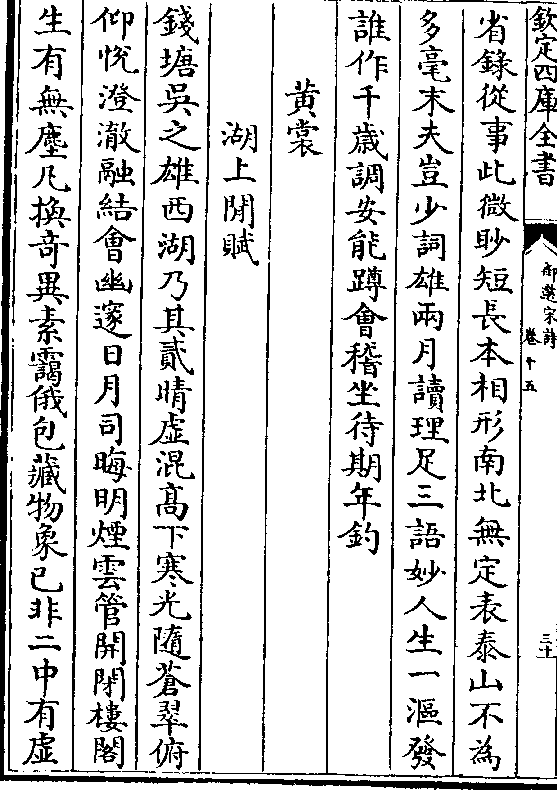 欽定四庫全書
御選宋詩
卷十五
三十
省錄從事此微眇短長本相形南北無定表泰山不為
多毫末夫豈少詞雄兩月讀理足三語妙人生一漚發
誰作千歳調安能蹲會稽坐待期年釣
黄裳
湖上閒賦
錢塘吳之雄西湖乃其貳晴虚混髙下寒光隨蒼翠俯
仰恱澄澈融結會幽邃日月司晦明煙雲管開閉樓閣
生有無塵凡換竒異素靄俄包藏物象已非二中有虚